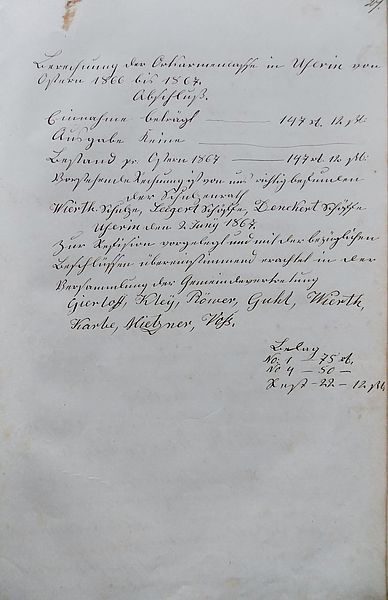 29.
Berechnung der Ortsarmenkasse in Uhlrin von
Ostern 1866 bis 1867.
Abschluß.
Einnahme beträgt — 147 rt. 12 sch.
Ausgabe Keine
Bestand pr. Ostern 1867 — 147 rt. 12 sch.
Vorstehende Rechnung ist von uns richtig befunden
der Schulzenrath
Wierth Schulze, Seegert Schöffe, Denckert Schöffe
den 2 Juny 1867.
Zur Revision vorgelegt und mit der bezüglichen
Beschlüssen übereinstimmend erachtet in der
Versammlung der Gemeindevertretung
Gierloff, Kley, Röwer, Guhl, Wierth,
Karbe, Mietzner, Voß.
Belag
No. 1 — 75 rt.
No 4 — 50 —
Rest — 22 — 12 sch.